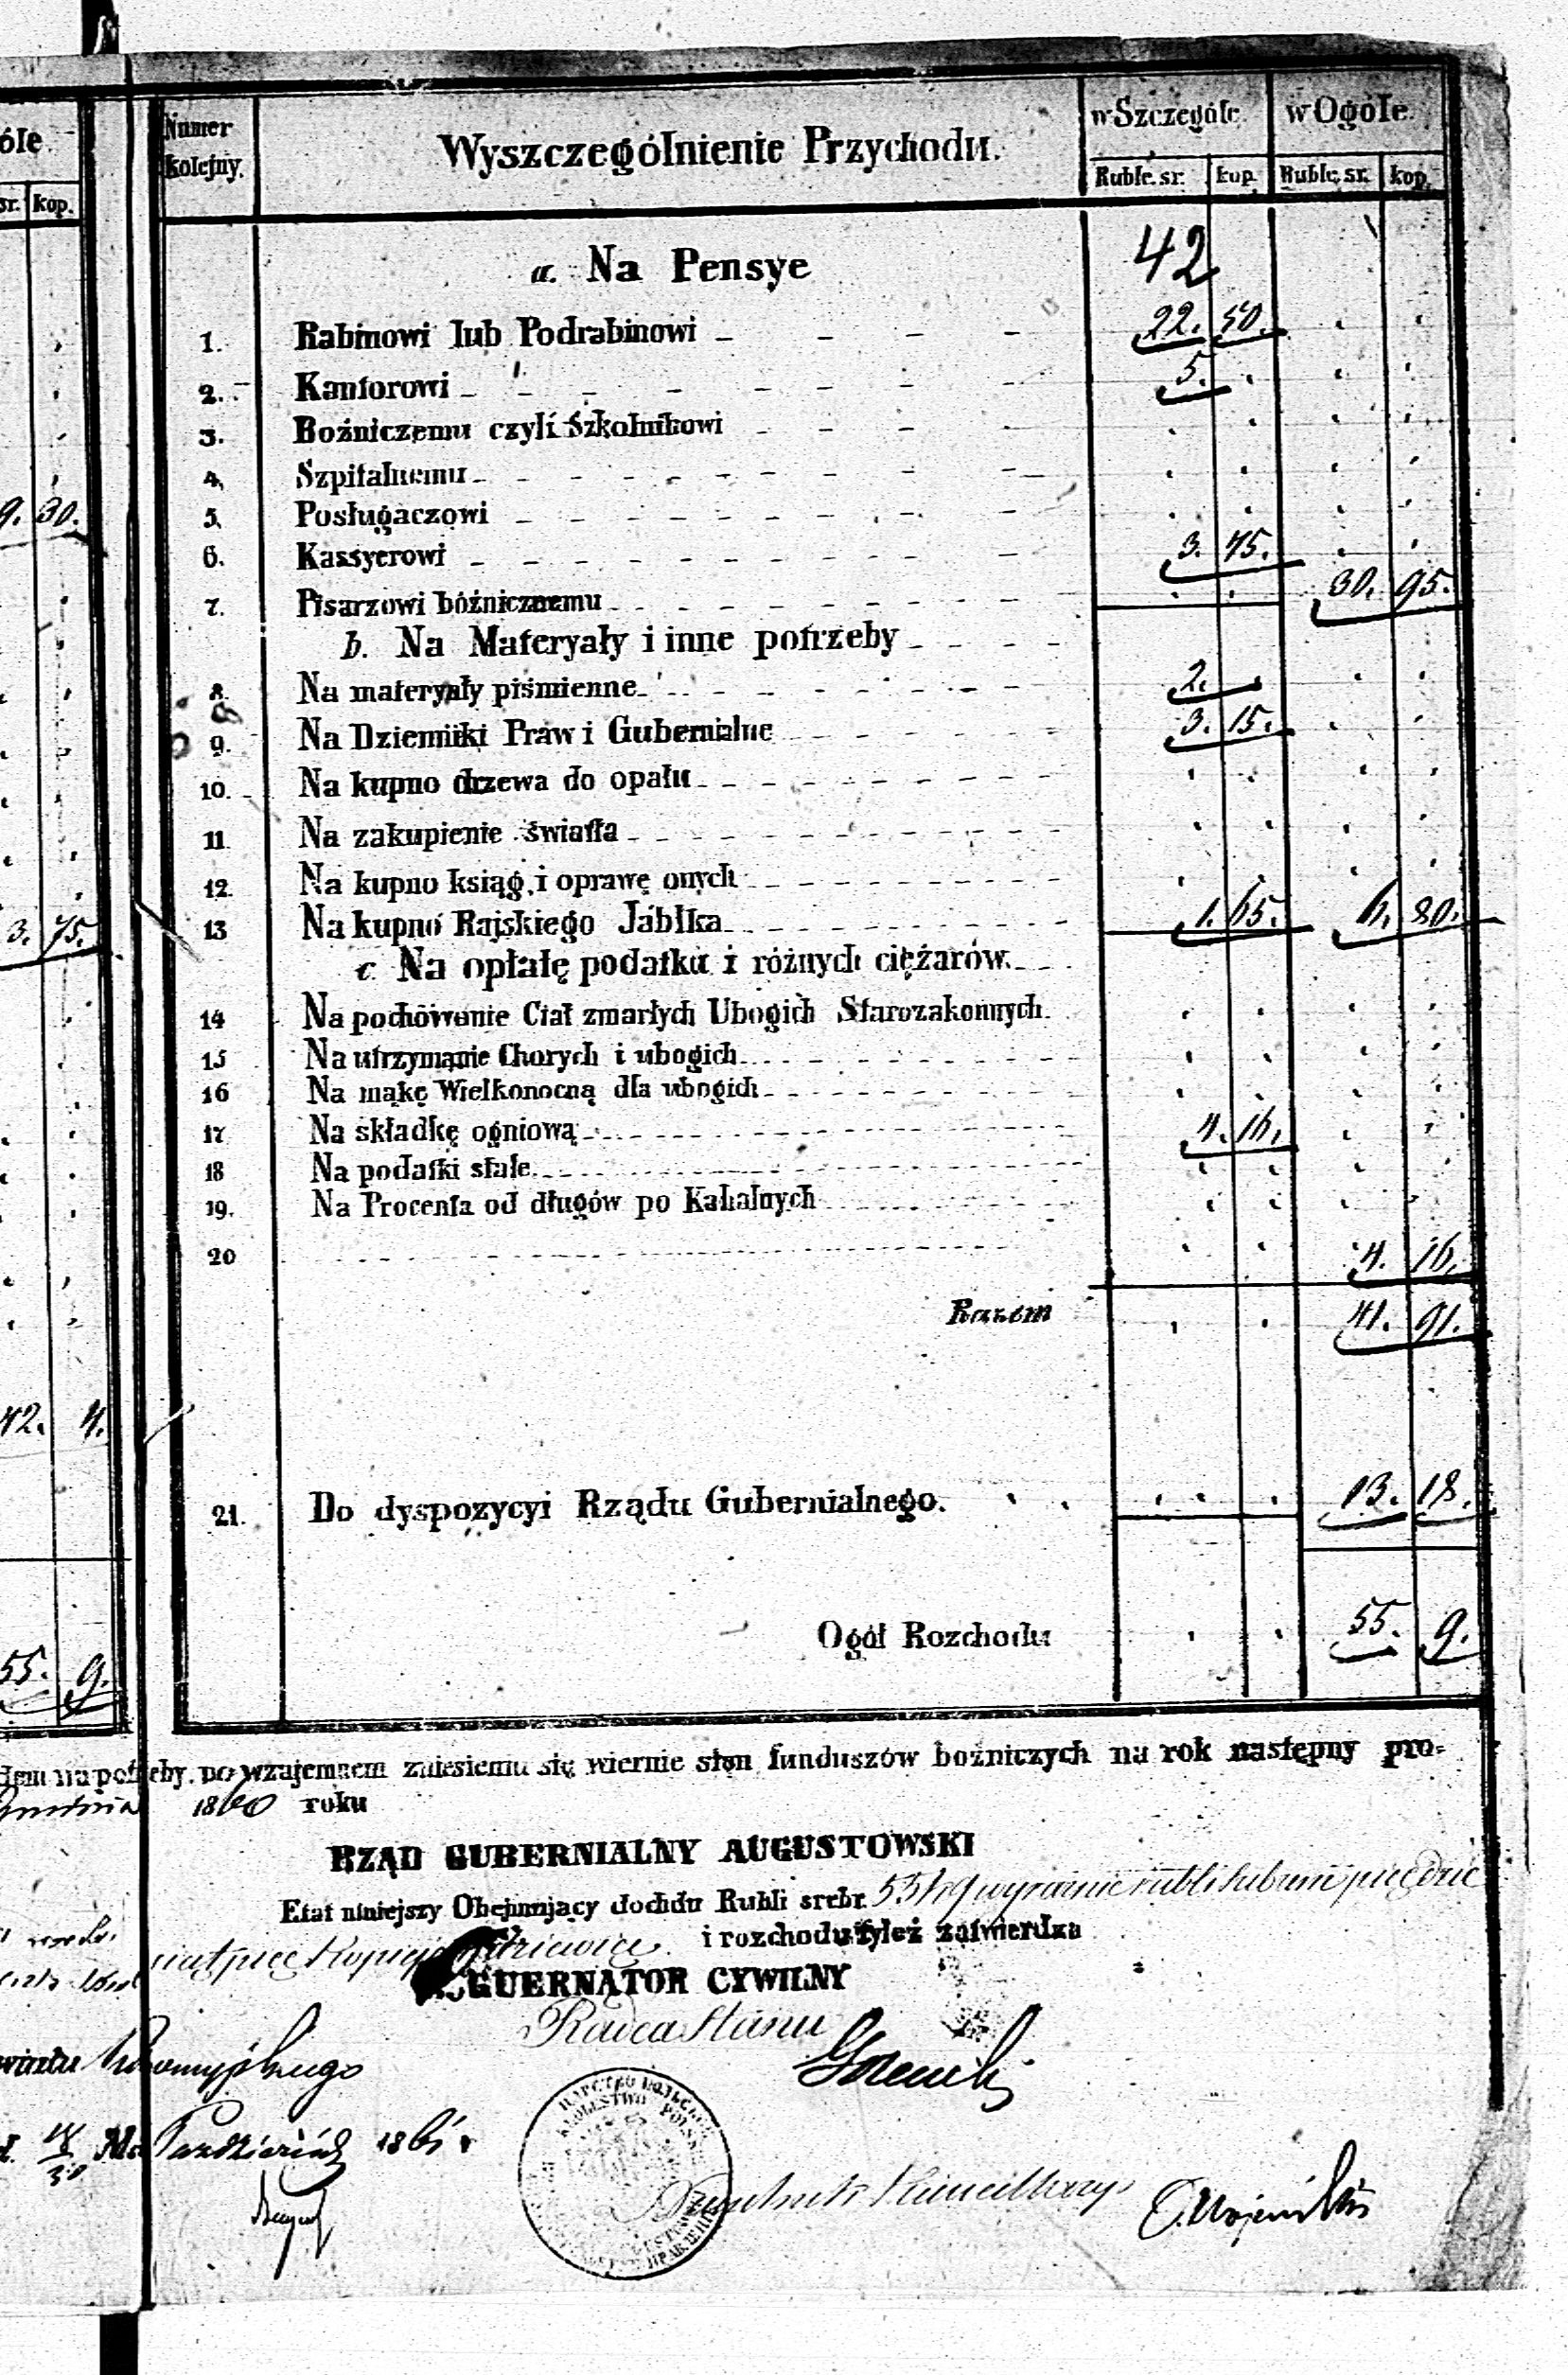 óle
sr. kop.
9. 30.
3. 75.
42. 4.
55. 9.
Numer kolejny.
Wyszczególnienie Przychodu.
w Szczególe. w Ogóle.
Ruble. sr. kop. Ruble. sr. kop.
42
a. Na Pensye
1. Rabinowi lub Podrabinowi 22. 50.
2. Kantorowi 5.
3. Bożniczemu czyli Szkolnikowi
4. Szpitalnemu
5. Posługaczowi
6. Kassyerowi 3. 45.
7. Pisarzowi bóżnicznemu 30. 95.
b. Na Materyały i inne potrzeby
8. Na materyały piśmienne 2.
9. Na Dzienniki Praw i Gubernialne 3. 15.
10. Na kupno drzewa do opału
11. Na zakupienie światła
12. Na kupno ksiąg i oprawę onych
13 Na kupno Rajskiego Jabłka 1. 65. 6. 80.
c. Na opłatę podatku i różnych ciężarów.
14 Na pochowanie Ciał zmarłych Ubogich Starozakonnych.
15 Na utrzymanie Chorych i ubogich
16 Na mąkę Wielkonocną dla ubogich
17 Na składkę ogniową 4. 16.
18 Na podatki stałe
19. Na Procenta od długów po Kahalnych
20 4. 16.
Razem 41. 91.
21. Do dyspozycyi Rządu Gubernialnego. 13. 18.
Ogół Rozchodu 55. 9.
potrzeby, po wzajemnem zniesieniu się wiernie stan funduszów bożniczych na rok następny pro-
Grudnia 1860 roku
RZĄD GUBERNIALNY AUGUSTOWSKI
Etat niniejszy Obejmujący dochdu Rubli srebr. 55 k 9 wyraźnie rubli srebrem pięćdzie
siąt pięć Kopiejek dziewięć i rozchodu tyleż zatwierdza
GUERNATOR CYWILNY
Radca Stanu
Łomżyńskiego
18/30 Mca Październik 1861 r
KRÓLESTWO POLSKIE
Naczelnik Kancellaryi